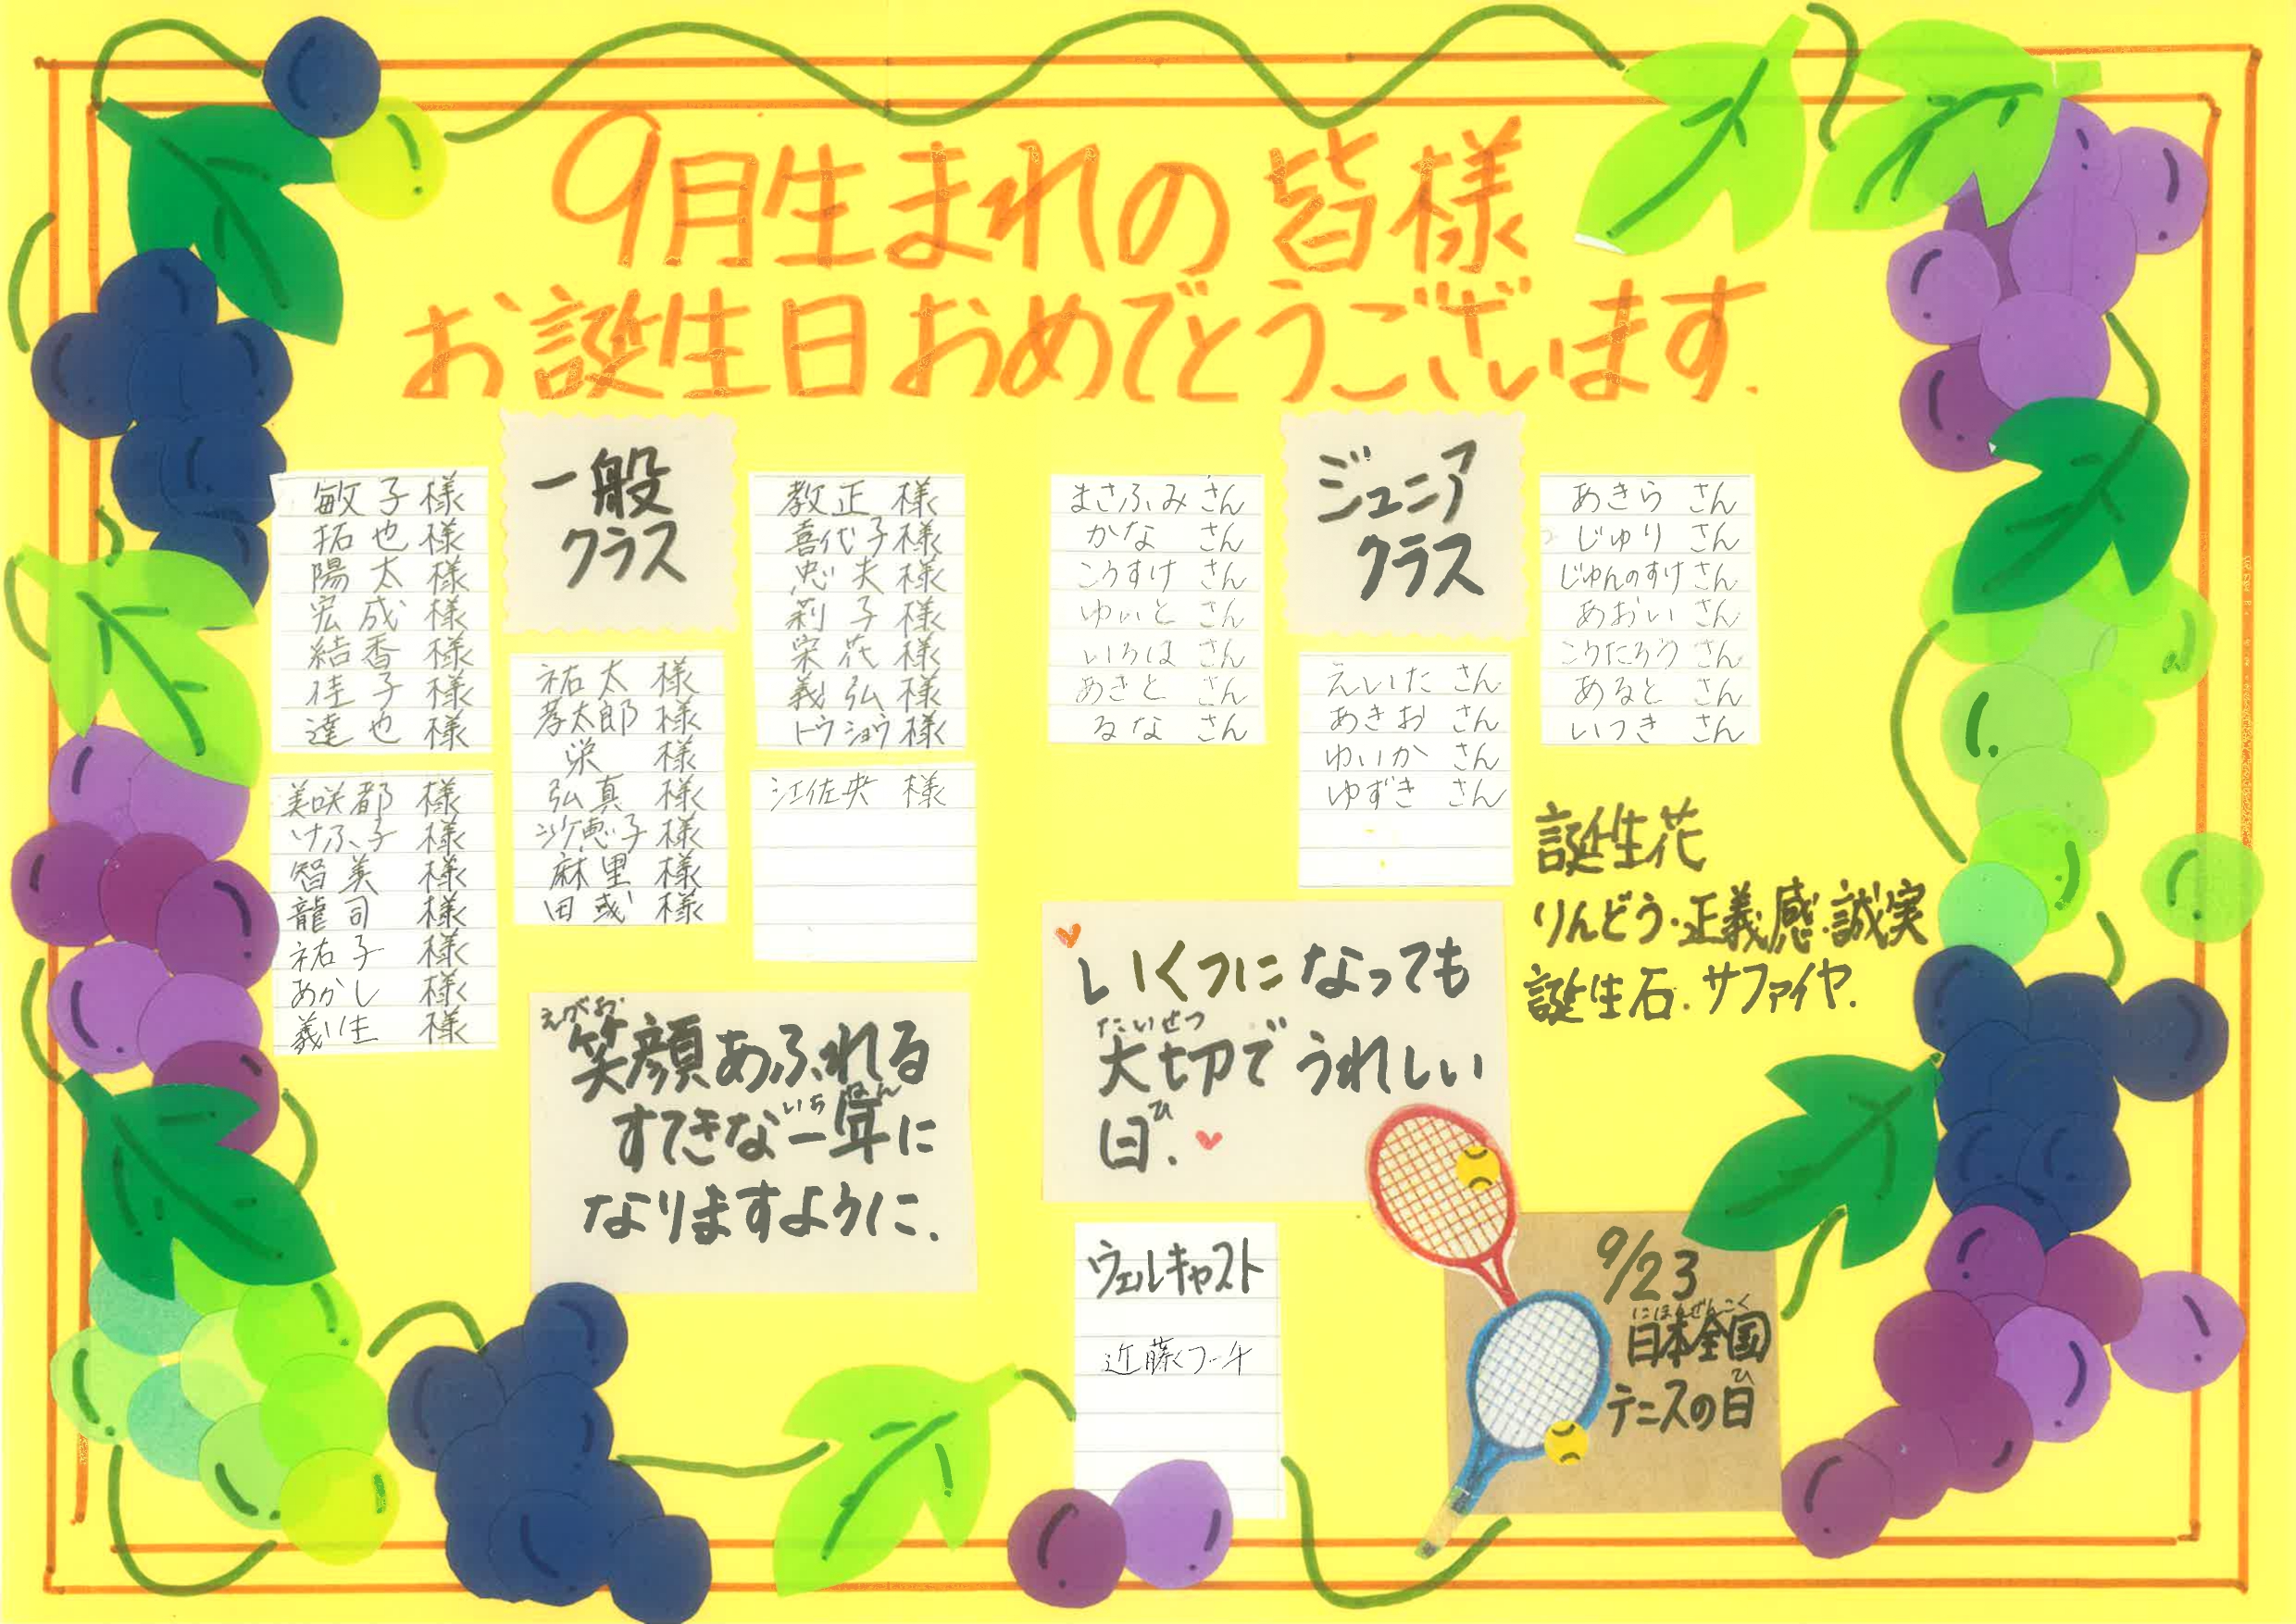 9月生まれの皆様
お誕生日おめでとうございます.
一般
クラス
敏子 様
拓也 様
陽太 様
宏成 様
結香 様
佳子 様
達也 様
美咲都 様
けふ子 様
智美 様
龍司 様
祐子 様
あかし 様
義生 様
祐太 様
孝太郎 様
栄 様
弘真 様
沙恵子 様
麻里 様
田 様
教正 様
喜代子 様
忠夫 様
莉子 様
栄花 様
義弘 様
トウショウ 様
江佐央 様
ジュニア
クラス
まさふみ さん
かな さん
こうすけ さん
ゆいと さん
いろは さん
あきと さん
るな さん
えいた さん
あきお さん
ゆいか さん
ゆずき さん
あきら さん
じゅり さん
じゅんのすけ さん
あおい さん
こうたろう さん
あると さん
いつき さん
誕生花
りんどう・正義感・誠実
誕生石.サファイヤ.
えがお
笑顔あふれる
いち ねん
すてきな一年に
なりますように.
いくつになっても
たいせつ
大切でうれしい
ひ
日.
ウェルキャスト
近藤コーチ
9/23
にほんぜんこく
日本全国
ひ
テニスの日